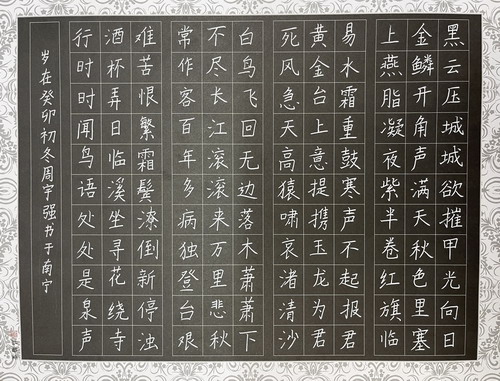 黑云压城城欲摧甲光向日
金鳞开角声满天秋色里塞
上燕脂凝夜紫半卷红旗临
易水霜重鼓寒声不起报君
黄金台上意提携玉龙为君
死风急天高猿啸哀渚清沙
白鸟飞回无边落木萧萧下
不尽长江滚滚来万里悲秋
常作客百年多病独登台艰
难苦恨繁霜鬓潦倒新停浊
酒杯弄日临溪坐寻花绕寺
行时时闻鸟语处处是泉声
岁在癸卯初冬周宇强书于南宁